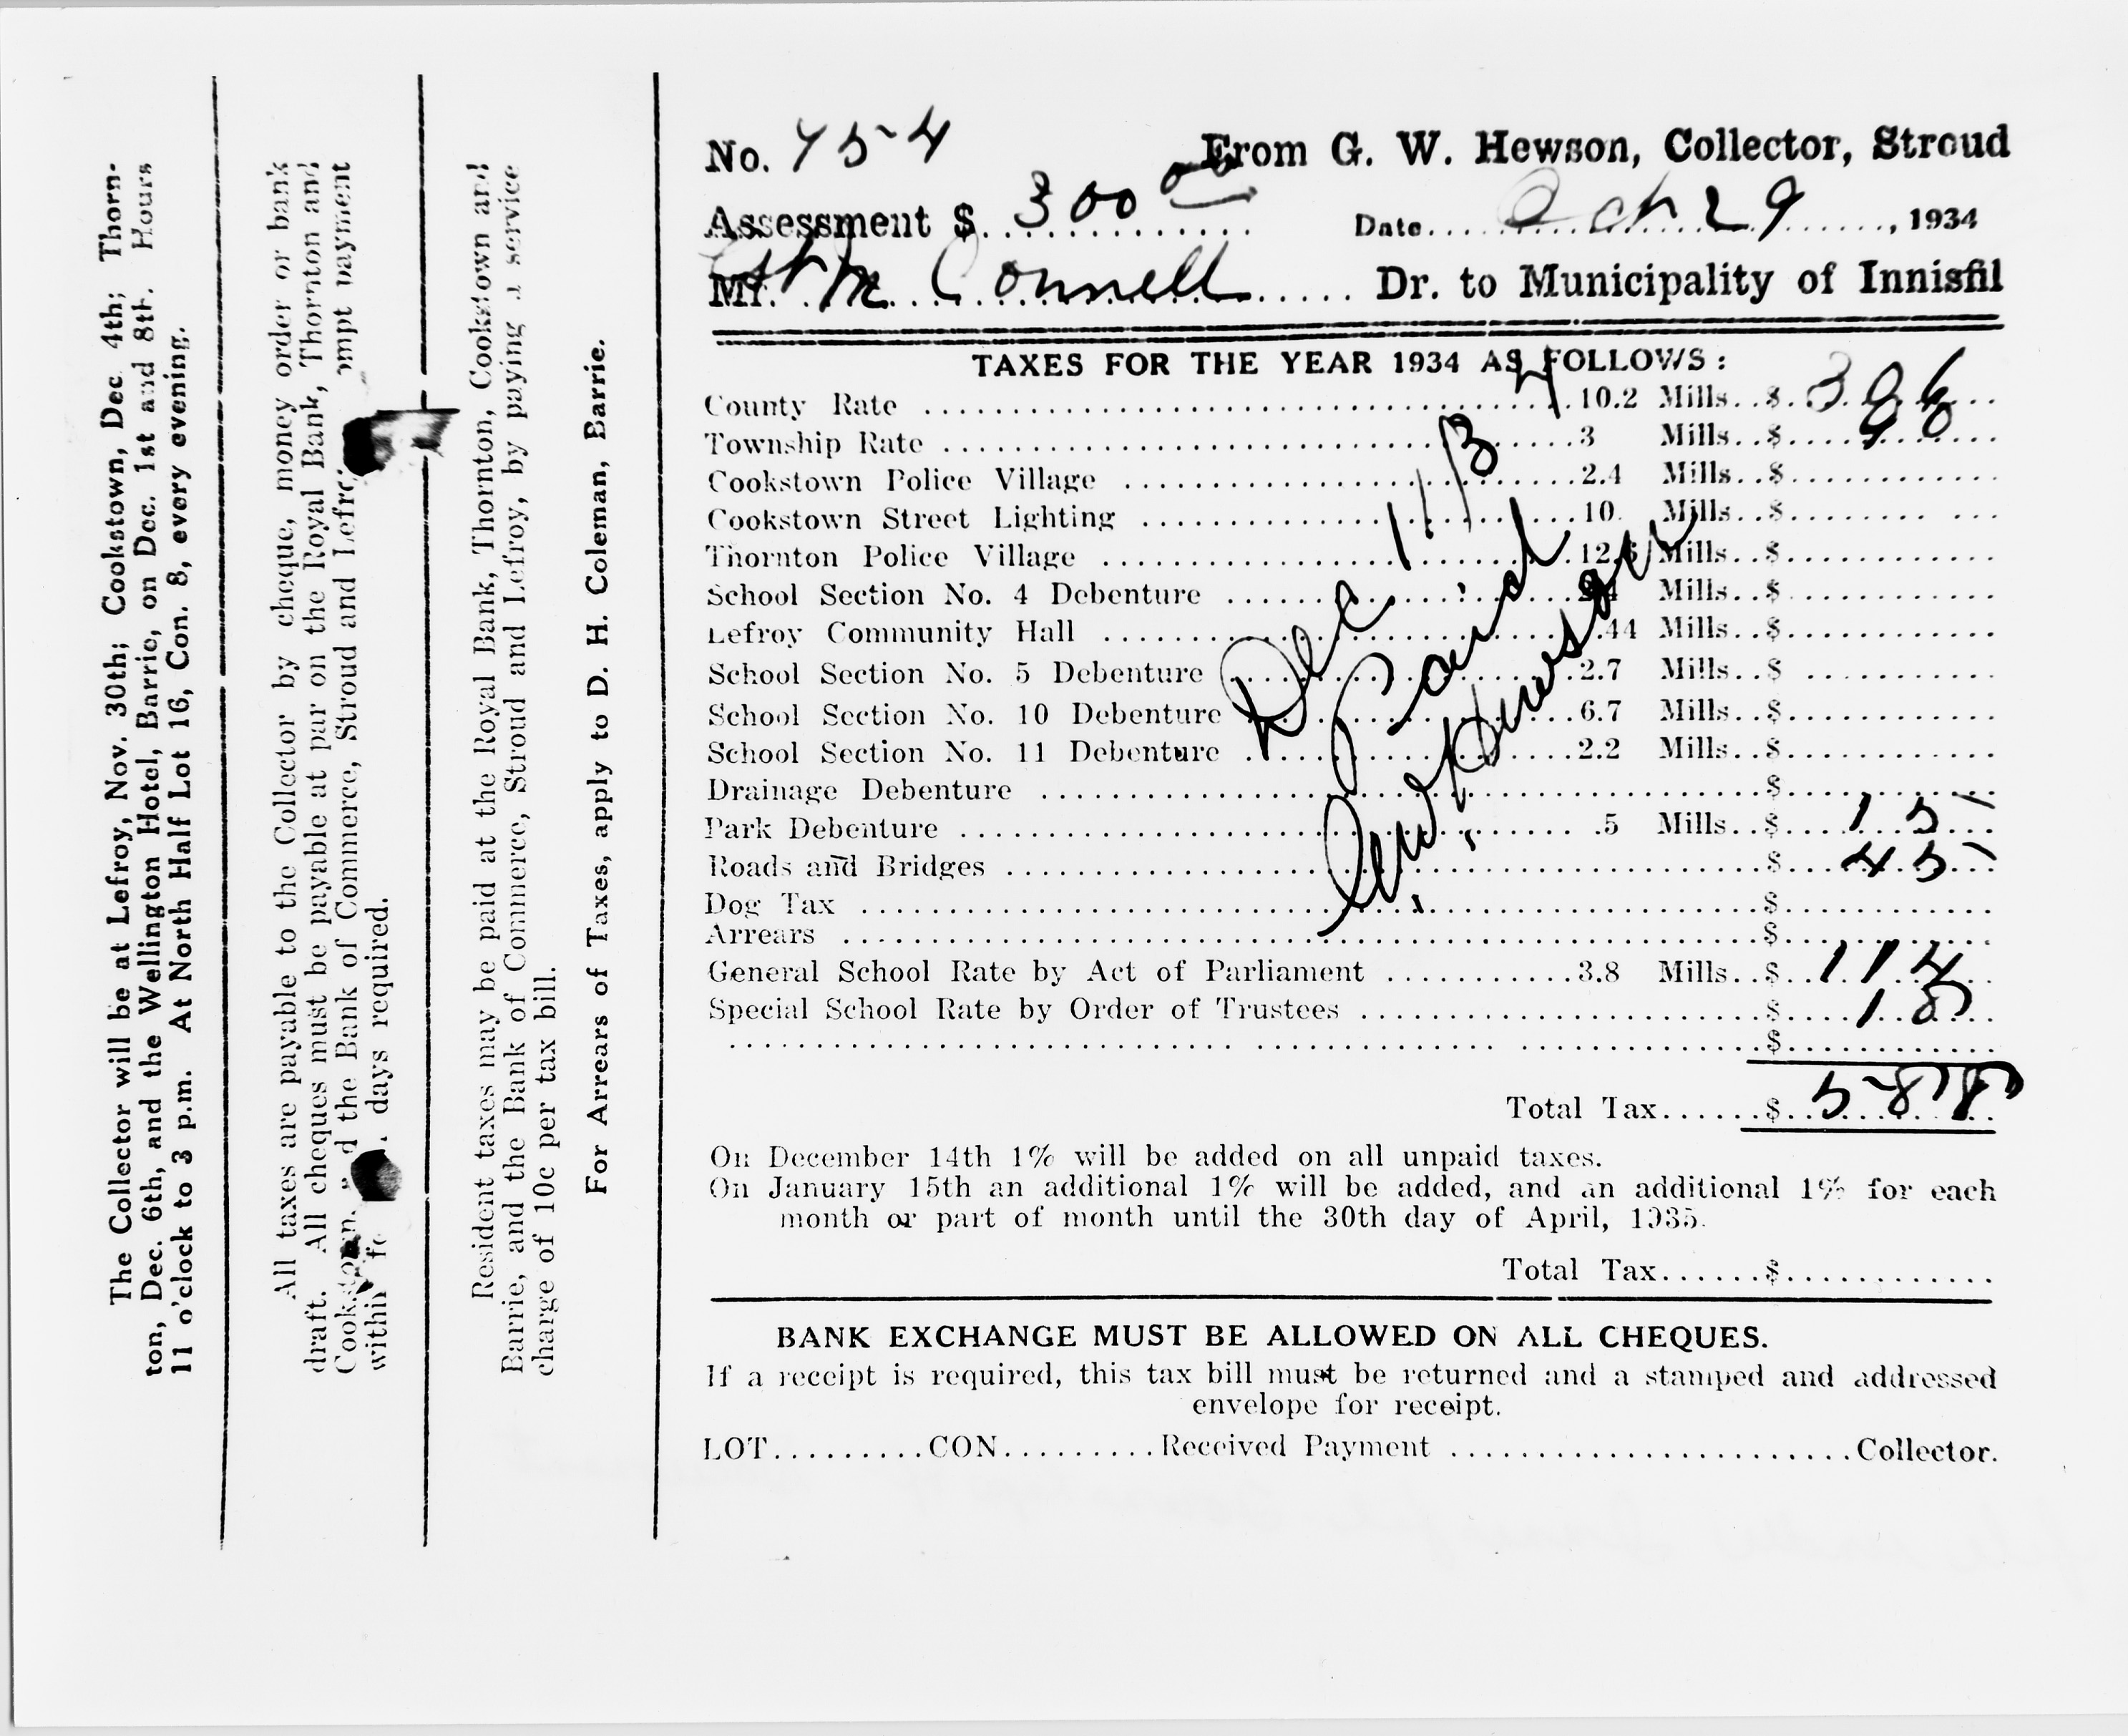 The Collector will be at Lefroy, Nov. 30th; Cookstown, Dec 4th; Thorn-
ton, Dec. 6th, and the Wellington Hotel, Barrie, on Dec. 1st and 8th. Hours
11 o'clock to 3 p.m. At North Half Lot 16, Con. 8, every evening.
All taxes are payable to the Collector by cheque, money order or bank
draft. All cheques must be payable at par on the Royal Bank, Thornton and
Cookstown, and the Bank of Commerce, Stroud and Lefroy. payment
within days required.
Resident taxes may be paid at the Royal Bank, Thornton, Cookstown and
Barrie, and the Bank of Commerce, Stroud and Lefroy, by paying a service
charge of 10c per tax bill.
For Arrears of Taxes, apply to D. H. Coleman, Barrie.
No. 754 From G. W. Hewson, Collector, Stroud
Assessment $ 300 00 Date Oct 29, 1934
Mr. Est Mc Connell Dr. to Municipality of Innisfil
TAXES FOR THE YEAR 1934 AS FOLLOWS:
County Rate 10.2 Mills $ 3 06
Township Rate 3 Mills $ 90
Cookstown Police Village 2.4 Mills $
Cookstown Street Lighting 10 Mills $
Thornton Police Village 12.6 Mills $
School Section No. 4 Debenture Mills $
Lefroy Community Hall .44 Mills $
School Section No. 5 Debenture 2.7 Mills $
School Section No. 10 Debenture 6.7 Mills $
School Section No. 11 Debenture 2.2 Mills $
Drainage Debenture $
Park Debenture .5 Mills $ 15
Roads and Bridges $ 45
Dog Tax $
Arrears $
General School Rate by Act of Parliament 3.8 Mills $ 1 14
Special School Rate by Order of Trustees $ 18
$
Dec 11/34
Paid
G.W. Hewson
Total Tax $ 5 88
On December 14th 1% will be added on all unpaid taxes.
On January 15th an additional 1% will be added, and an additional 1% for each
month or part of month until the 30th day of April, 1935.
Total Tax $
BANK EXCHANGE MUST BE ALLOWED ON ALL CHEQUES.
If a receipt is required, this tax bill must be returned and a stamped and addressed
envelope for receipt.
LOT CON Received Payment Collector.